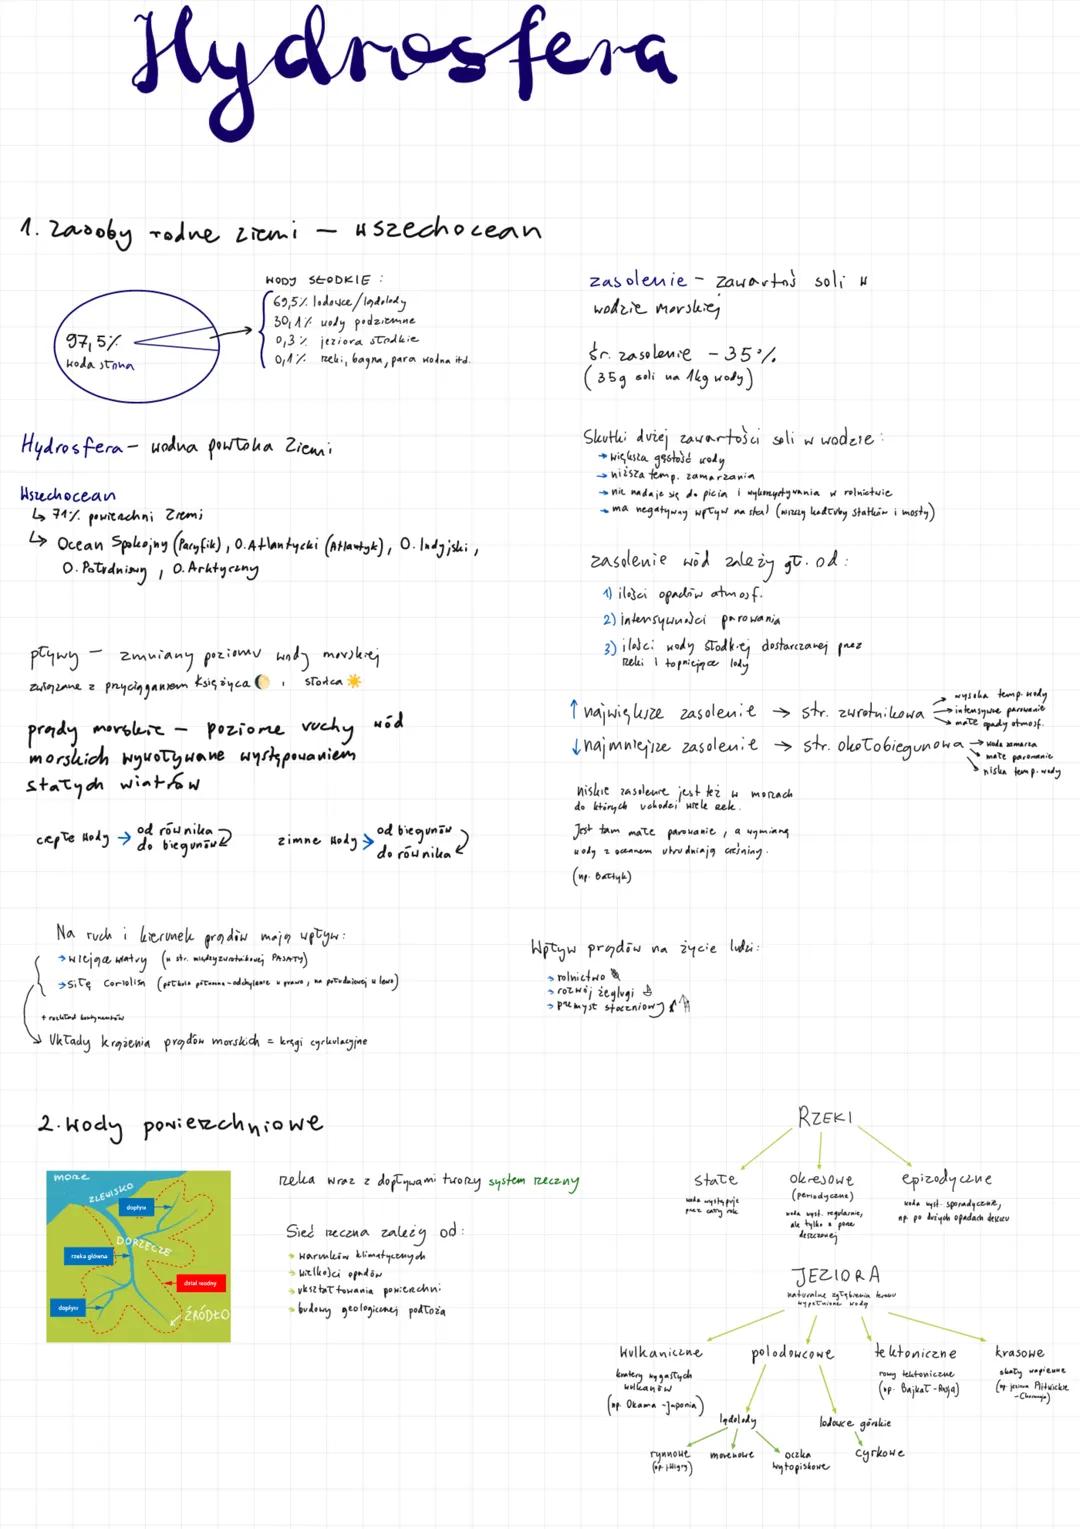 Hydrosfera
1. Zasoby wodne ziemi – wszechocean
97,5%
woda słona
WODY SŁODKIE :
69,5% lodowce/lądolody
30,1% wody podziemne
0,3% jeziora słodkie
0,1% rzeki, bagna, para wodna itd.
Hydrosfera – wodna powłoka Ziemi
Wszechocean
↳ 71% powierzchni Ziemi
↳ Ocean Spokojny (Pacyfik), O. Atlantycki (Atlantyk), O. Indyjski,
O. Południowy, O. Arktyczny
pływy – zmniany poziomu wody morskiej
związane z przyciąganiem księżyca i słońca
prądy morskie – poziome ruchy wód
morskich wywoływane występowaniem
stałych wiatrów
ciepłe wody → od równika
do biegunów
zimne wody → od biegunów
do równika
Na ruch i kierunek prądów mają wpływ:
→ wiejące wiatry (w str. międzyzwrotnikowej PASATY)
→ siłę coriolisa (półkula północna – odchylenie w prawo, na południowej w lewo)
+ rozkład kontynentów
Układy krążenia prądów morskich = kręgi cyrkulacyjne
zasolenie – zawartoś soli w
wodzie morskiej
śr. zasolenie – 35 ‰
(35g soli na 1kg wody)
Skutki dużej zawartości soli w wodzie:
→ większa gęstość wody
→ niższa temp. zamarzania
→ nie nadaje się do picia i wykorzystywania w rolnictwie
→ ma negatywny wpływ na stal (niszczy kadłuby statków i mosty)
zasolenie wód zależy gł. od:
1) ilości opadów atmosf.
2) intensywności parowania
3) ilości wody słodkiej dostarczanej przez
rzeki i topniejące lody
↑ największe zasolenie → str. zwrotnikowa
→ wysoka temp. wody
→ intensywne parowanie
→ małe opady atmosf.
↓ najmniejsze zasolenie → str. okołobiegunowa
→ woda zamarza
→ małe parowanie
→ niska temp. wody
niskie zasolenie jest też w morzach
do których uchodzi wiele rzek.
Jest tam małe parowanie, a wymianę
wody z oceanem utrudniają cieśniny.
(np. Bałtyk)
Wpływ prądów na życie ludzi:
→ rolnictwo
→ rozwój żeglugi
→ przemysł stoczniowy
2. Wody powierzchniowe
morze
ZLEWISKO
dopływ
DORZECZE
rzeka główna
dział wodny
dopływ
ŹRÓDŁO
rzeka wraz z dopływami tworzy system rzeczny
Sieć rzeczna zależy od:
→ warunków klimatycznych
→ wielkości opadów
→ ukształtowania powierzchni
→ budowy geologicznej podłoża
RZEKI
stałe
woda występuje
przez cały rok
okresowe
(periodyczne)
woda wyst. regularnie,
ale tylko w porze
deszczowej
epizodyczne
woda wyst. sporadycznie,
np. po dużych opadach deszczu
JEZIORA
naturalne zagłębienia terenu
wypełnione wodą
wulkaniczne
kratery wygasłych
wulkanów
(np. Okama - Japonia)
polodowcowe
tektoniczne
rowy tektoniczne
(np. Bajkał - Rosja)
krasowe
skały wapienne
(np. jeziora Plitwickie
- Chorwacja)
lądolody
lodowce górskie
rynnowe
morenowe
oczka
wytopiskowe
cyrkowe